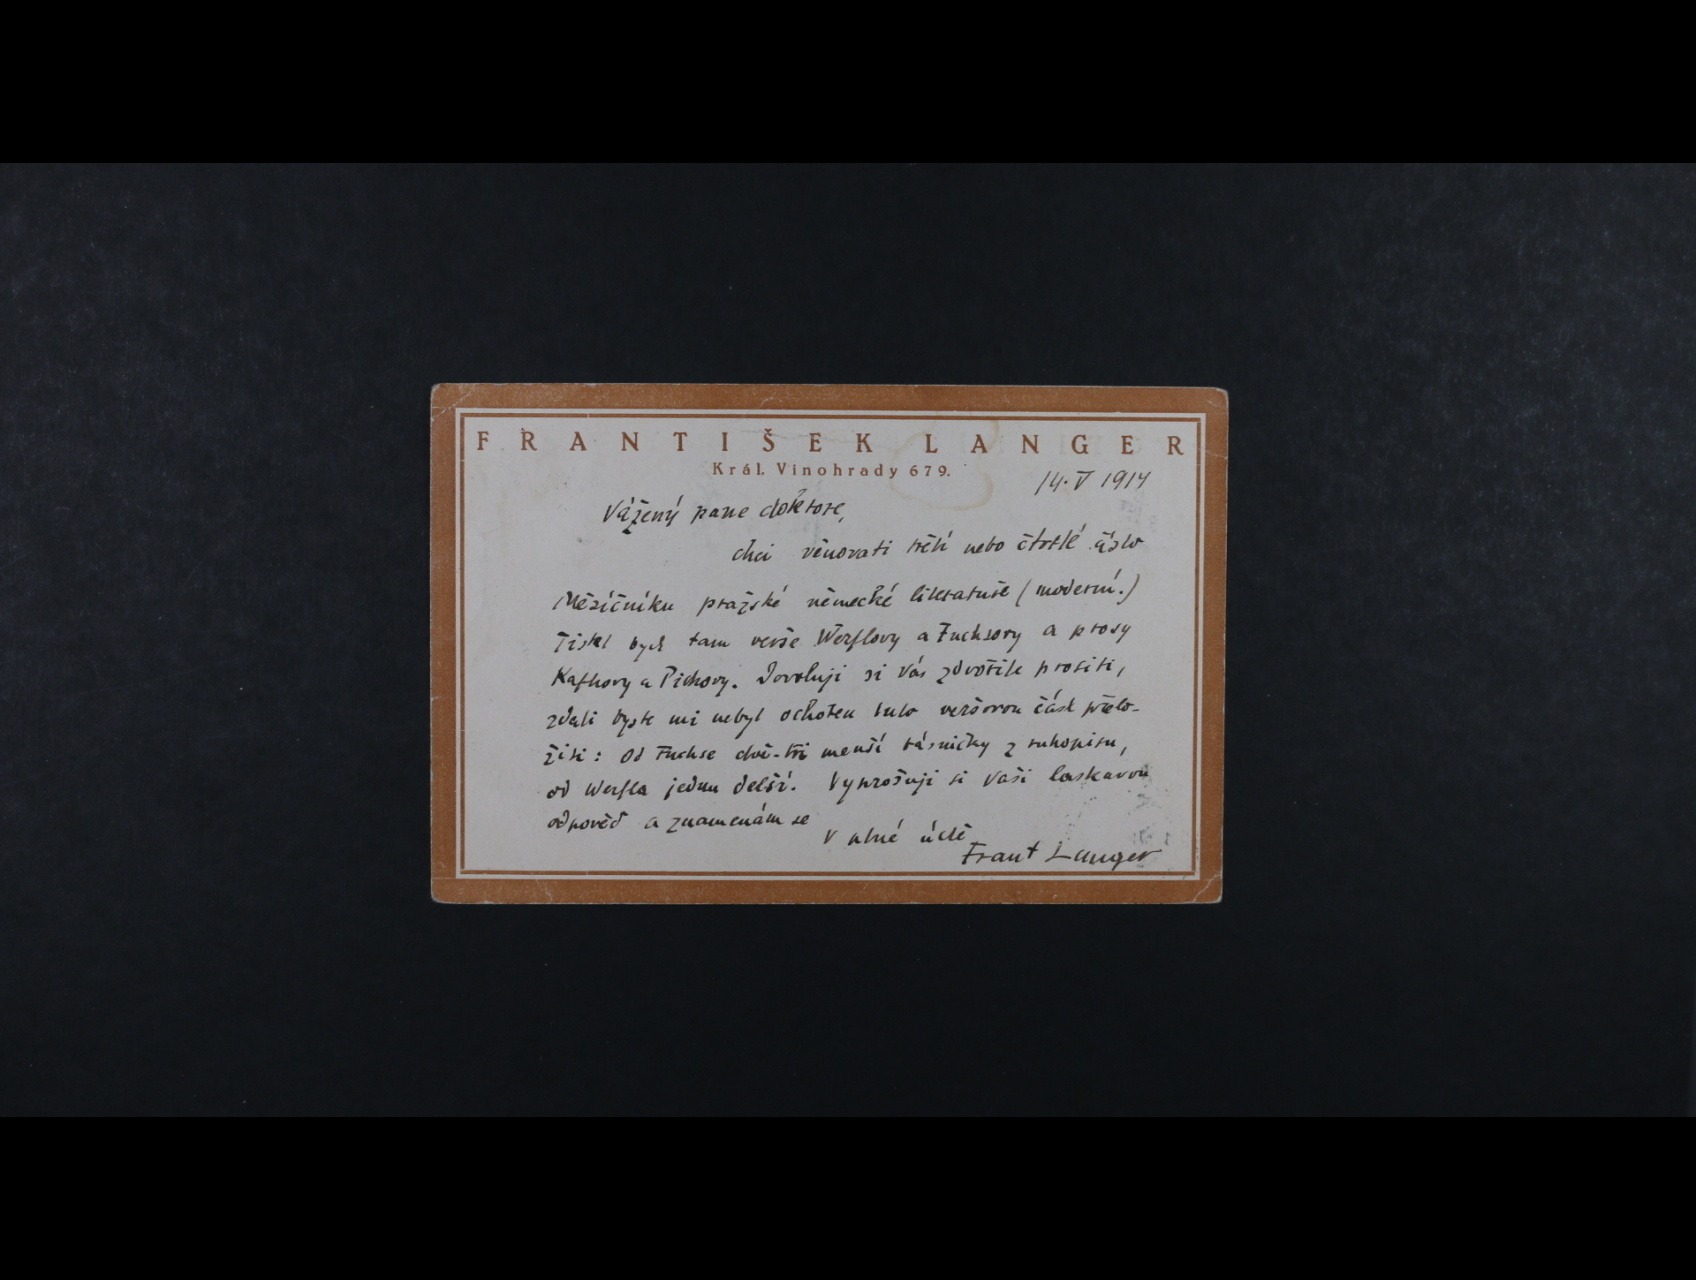 FRANTIŠEK LANGER
Král. Vinohrady 679.
14. V 1914
Vážený pane doktore,
chci věnovati třetí nebo čtvrté číslo
Měsíčníku pražské německé literatuře (moderní.)
Tiskl bych tam verše Werflovy a Fuchsovy a prosy
Kafkovy a Pickovy. Dovoluji si Vás zdvořile prositi,
zdali byste mi nebyl ochoten tuto veršovou část přelo-
žiti: Od Fuchse dvě-tři menší básničky z rukopisu,
od Werfla jednu delší. Vyprošuji si Vaši laskavou
odpověď a znamenám se
V plné úctě
Frant Langer